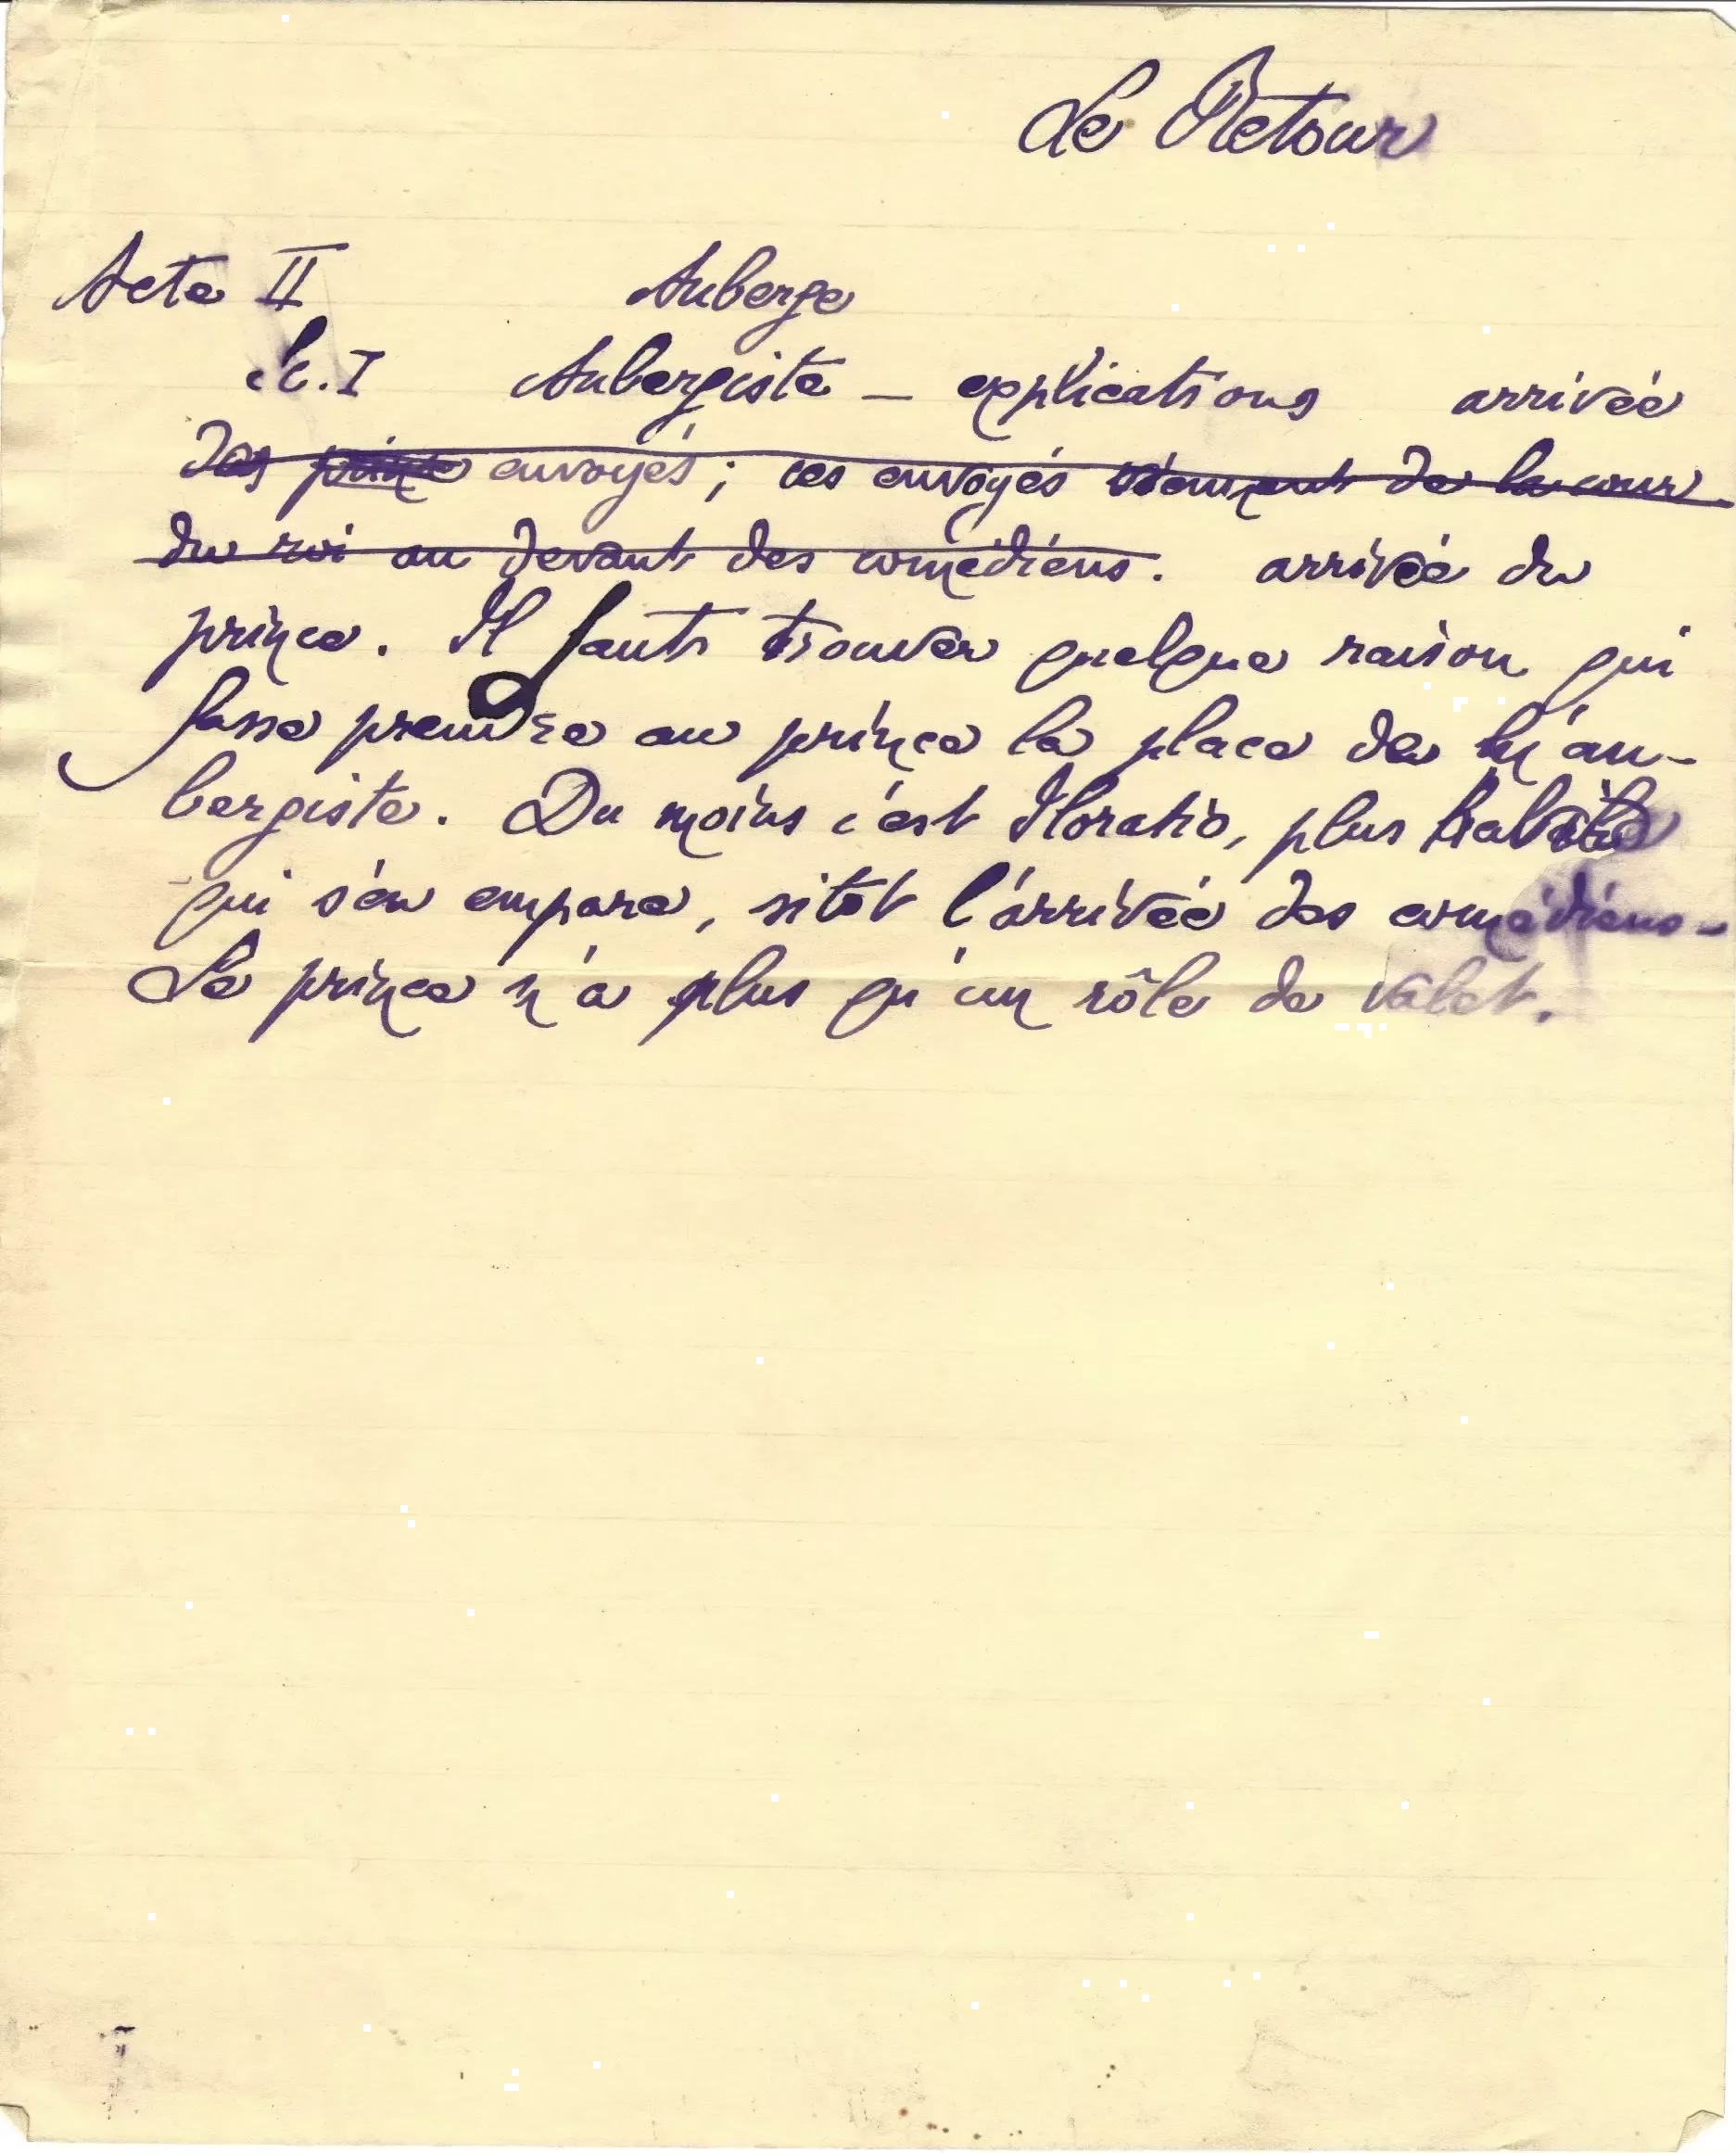 Le Retour
Acte II Auberge
Sc. I Aubergiste – explications arrivée
des prince envoyés ; ces envoyés viennent de la cour
du roi au devant des comédiens. arrivée du
prince. Il faut trouver quelque raison qui
fasse prendre au prince la place de l'au-
bergiste. Du moins c'est Horatio, plus habile
qui s'en empare, sitôt l'arrivée des comédiens-
Le prince n'a plus qu'un rôle de valet.